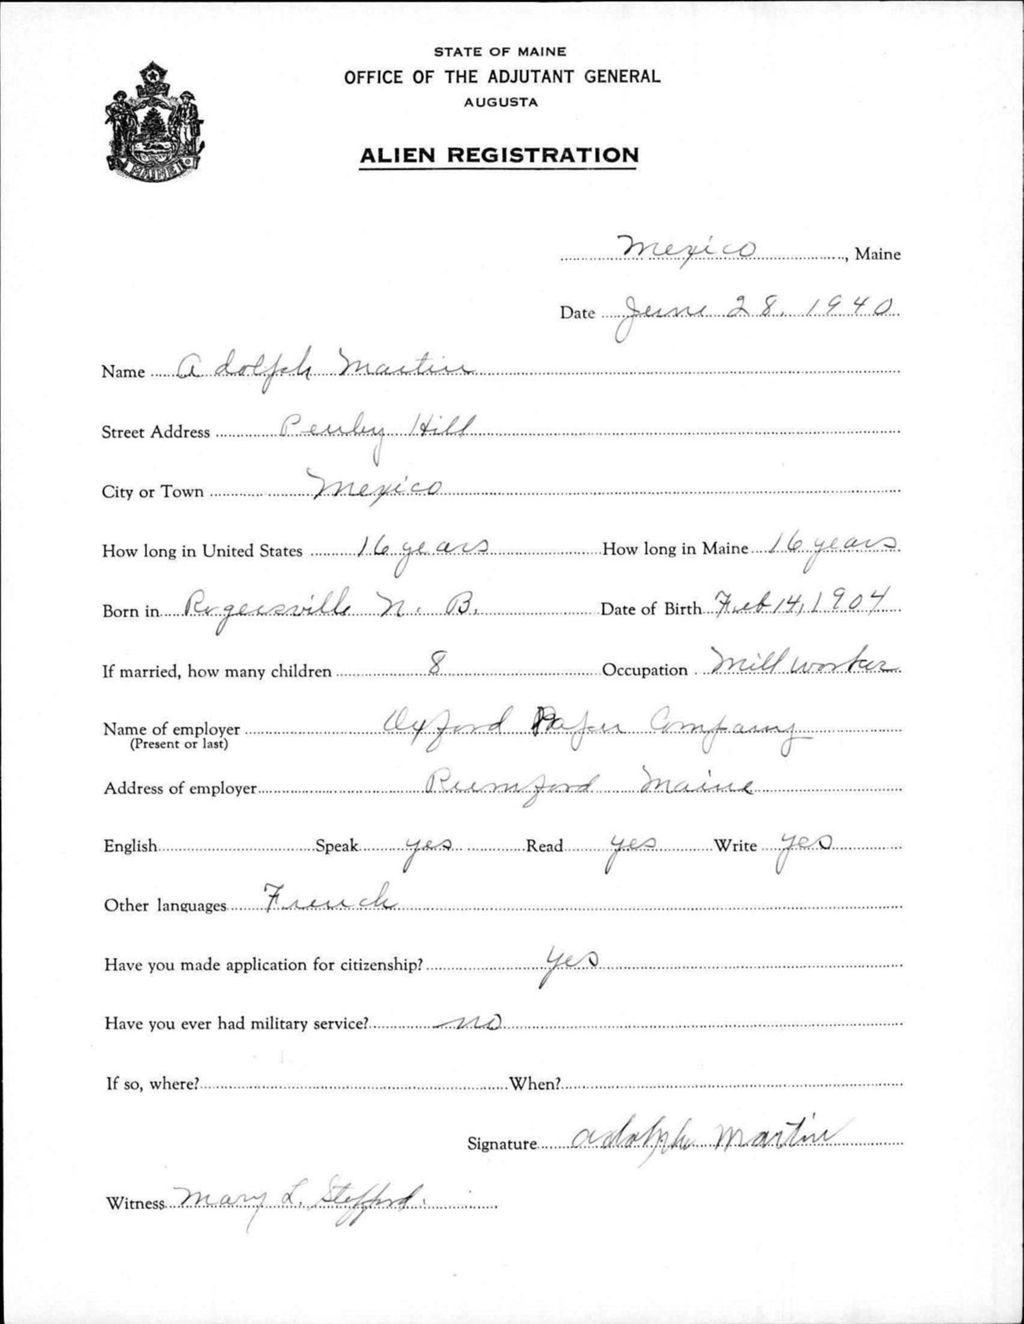 STATE OF MAINE
OFFICE OF THE ADJUTANT GENERAL
AUGUSTA
ALIEN REGISTRATION
MAINE
Mexico, Maine
Date June 28, 1940
Name Adolph Martin
Street Address Hill
City or Town Mexico
How long in United States 16 years How long in Maine 16 years
Born in Rogersville N. B. Date of Birth Feb 14, 1904
If married, how many children 8 Occupation Mill worker
Name of employer Oxford Paper Company
(Present or last)
Address of employer Rumford Maine
English Speak yes Read yes Write yes
Other languages French
Have you made application for citizenship? yes
Have you ever had military service? no
If so, where? When?
Signature Adolph Martin
Witness Mary L.